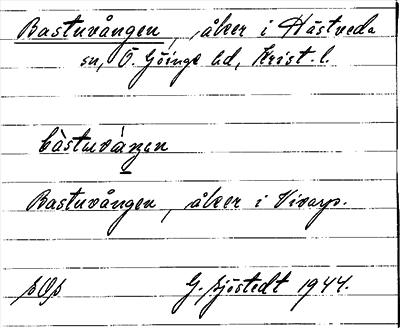 Bastuvången, åker i Hästveda
sn, Ö. Göinge hd, Krist. l.
bàstuváŋən
Bastuvången, åker i Vivarp.
G. Sjöstedt 1944.